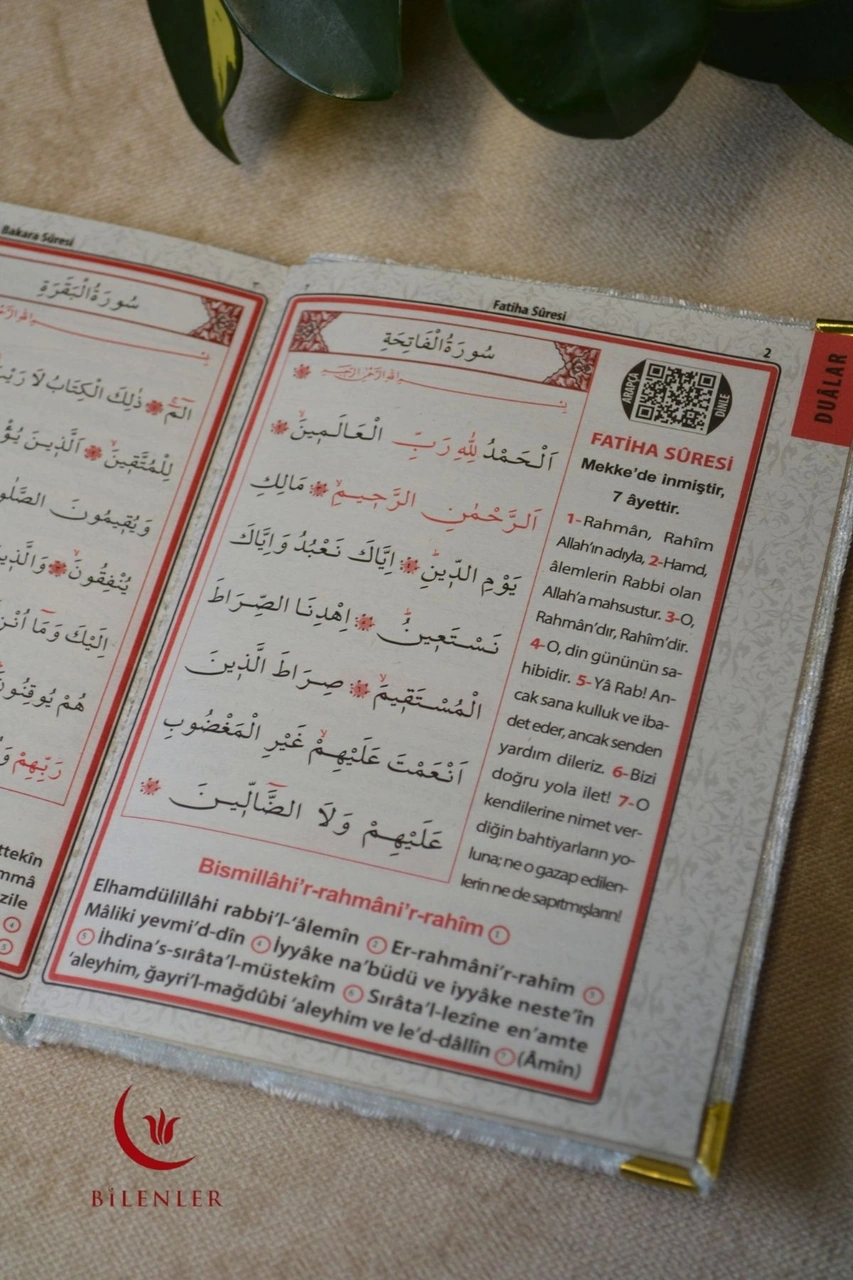 Bakara Sûresi
سُورَةُ الْبَقَرَةِ
الٓمٓ ذٰلِكَ الْكِتَابُ لَا رَيْبَ
لِلْمُتَّقِينَ اَلَّذِينَ
وَيُقِيمُونَ الصَّلٰوةَ
يُنْفِقُونَ وَالَّذِينَ
اِلَيْكَ وَمَٓا اُنْزِلَ
هُمْ يُوقِنُونَ
رَبِّهِمْ
Fatiha Sûresi
2
DUÂLAR
سُورَةُ الْفَاتِحَةِ
بِسْمِ اللّٰهِ الرَّحْمٰنِ الرَّحِيمِ
اَلْحَمْدُ لِلّٰهِ رَبِّ الْعَالَمِينَۙ
اَلرَّحْمٰنِ الرَّحِيمِۙ مَالِكِ
يَوْمِ الدِّينِۜ اِيَّاكَ نَعْبُدُ وَاِيَّاكَ
نَسْتَعِينُۜ اِهْدِنَا الصِّرَاطَ
الْمُسْتَقِيمَۙ صِرَاطَ الَّذِينَ
اَنْعَمْتَ عَلَيْهِمْۙ غَيْرِ الْمَغْضُوبِ
عَلَيْهِمْ وَلَا الضَّٓالِّينَ
ARAPÇA
DİNLE
FATİHA SÛRESİ
Mekke'de inmiştir,
7 âyettir.
1- Rahmân, Rahîm
Allah'ın adıyla, 2-Hamd,
âlemlerin Rabbi olan
Allah'a mahsustur. 3-O,
Rahmân'dır, Rahîm'dir.
4-O, din gününün sa-
hibidir. 5- Yâ Rab! An-
cak sana kulluk ve iba-
det eder, ancak senden
yardım dileriz. 6- Bizi
doğru yola ilet! 7- O
kendilerine nimet ver-
diğin bahtiyarların yo-
luna; ne o gazap edilen-
lerin ne de sapıtmışların!
Bismillâhi'r-rahmâni'r-rahîm ①
Elhamdülillâhi rabbi'l-'âlemîn ② Er-rahmâni'r-rahîm ③
Mâliki yevmi'd-dîn ④ İyyâke na'büdü ve iyyâke neste'în
⑤ İhdina's-sırâta'l-müstekîm ⑥ Sırâta'l-lezîne en'amte
'aleyhim, ğayri'l-mağdûbi 'aleyhim ve le'd-dâllîn ⑦ (Âmîn)
ttekîn
mmâ
zile
④
⑤
BİLENLER